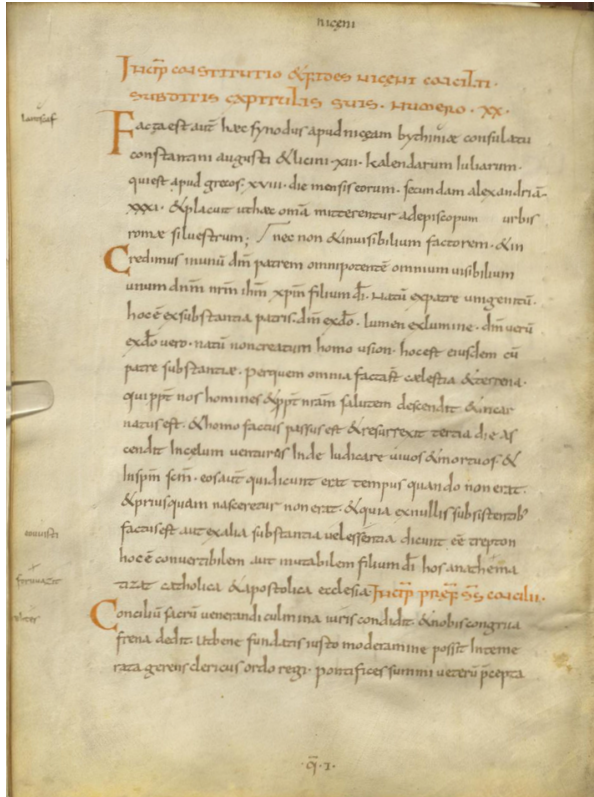 niceni
Incip̄ constitutio & fides niceni concilii·
subditis capitulis suis· numero· xx·
Facta est aut̄ haec synodus apud niceam bythiniae consulatu
constantini augusti & licini· xiii· kalendarum iuliarum·
qui est apud grecos· xviii· die mensis eorum· secundam alexandriā·
xxxi· & placuit ut haec om̄a mitterentur ad episcopum urbis
romae silvestrum; nec non & invisibilium factorem· & in
Credimus in unū dm̄ patrem omnipotentē omnium visibilium
unum dnm̄ nrm̄ ihm̄ xpm̄ filium dī· natū ex patre unigenitū·
hoc ē ex substantia patris· dm̄ ex dō· lumen ex lumine· dm̄ verū
ex dō vero· natū non creatum homo usion· hoc est eiusdem cū
patre substantiae· per quem omnia facta st̄ caelestia & terrena·
qui ppt̄ nos homines & ppt̄ nr̄am salutem descendit & incar
natus est· & homo factus passus est & resurrexit tertia die as
cendit in celum venturus inde iudicare vivos & mortuos· &
in spm̄ scm̄· eos aut̄ qui dicunt erat tempus quando non erat·
& priusquam nasceretur non erat· & quia ex nullis subsistentib;
factus est aut ex alia substantia vel essentia dicunt eē trepton
hoc ē convertibilem aut mutabilem filium dī hos anathema
tizat catholica & apostolica ecclesia· Incip̄ p̄ref̄ ss̄ concilii·
Conciliū sacrū venerandi culmina iuris condidit· & nobis congrua
frena dedit· ut bene fundatis iusto moderamine possit inteme
rata gerens clericus ordo regi· pontifices summi veterū p̄cepta
·q̄·i·